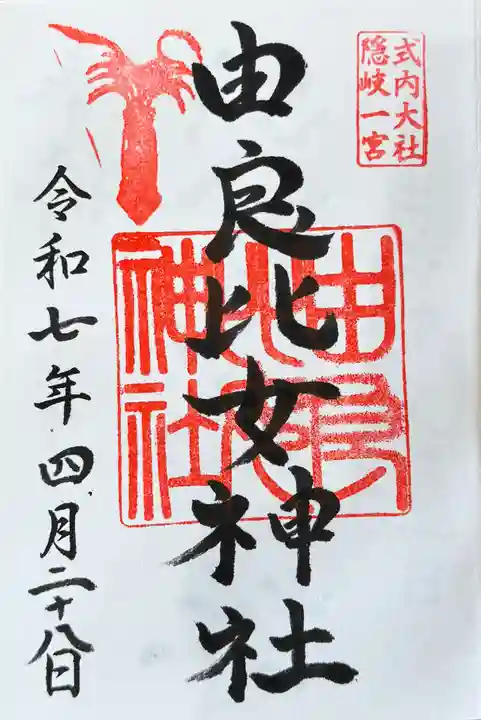 式内大社
隠岐一宮
由良比女神社
由良
比女
神社
令和七年四月二十八日